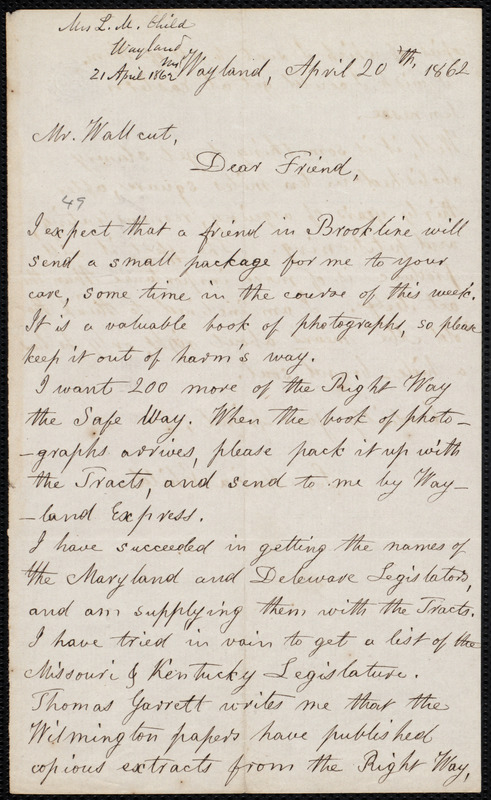 Mrs L. M. Child
Wayland
21 April 1862
Wayland, April 20th, 1862
Mr. Wallcut,
Dear Friend,
49
I expect that a friend in Brookline will
send a small package for me to your
care, some time in the course of this week.
It is a valuable book of photographs, so please
keep it out of harm's way.
I want 200 more of the Right Way
the Safe Way. When the book of photo-
-graphs arrives, please pack it up with
the Tracts, and send to me by Way-
-land Express.
I have succeeded in getting the names of
the Maryland and Deleware Legislators,
and am supplying them with the Tracts.
I have tried in vain to get a list of the
Missouri & Kentucky Legislature.
Thomas Garrett writes me that the
Wilmington papers have published
copious extracts from the Right Way,